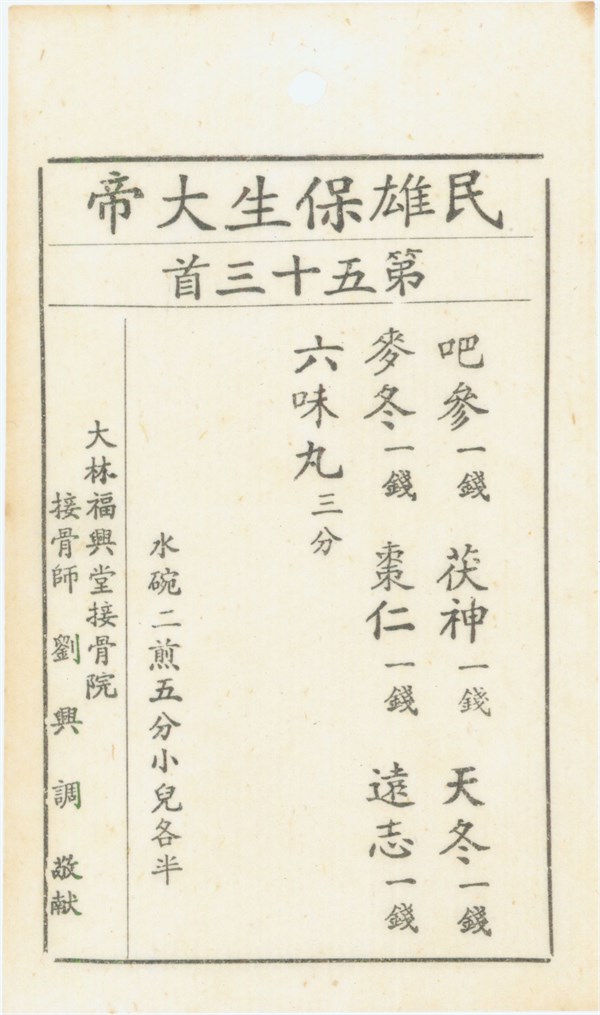 民雄保生大帝
第五十三首
吧參一錢 茯神一錢 天冬一錢
麥冬一錢 棗仁一錢 遠志一錢
六味丸三分
水碗二煎五分小兒各半
大林福興堂接骨院
接骨師 劉興調 敬献